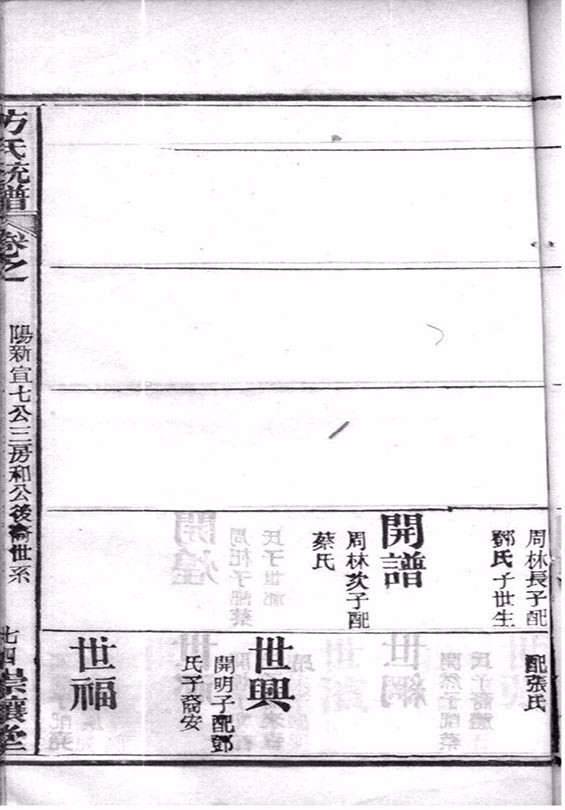 周林長子配
鄧氏子世生
開譜
周林次子配
蔡氏
配張氏
世興
開明子配鄧
氏子裔安
世福
方氏統譜
卷之一
陽新宣七公三房和公後裔世系
七四
崇讓堂